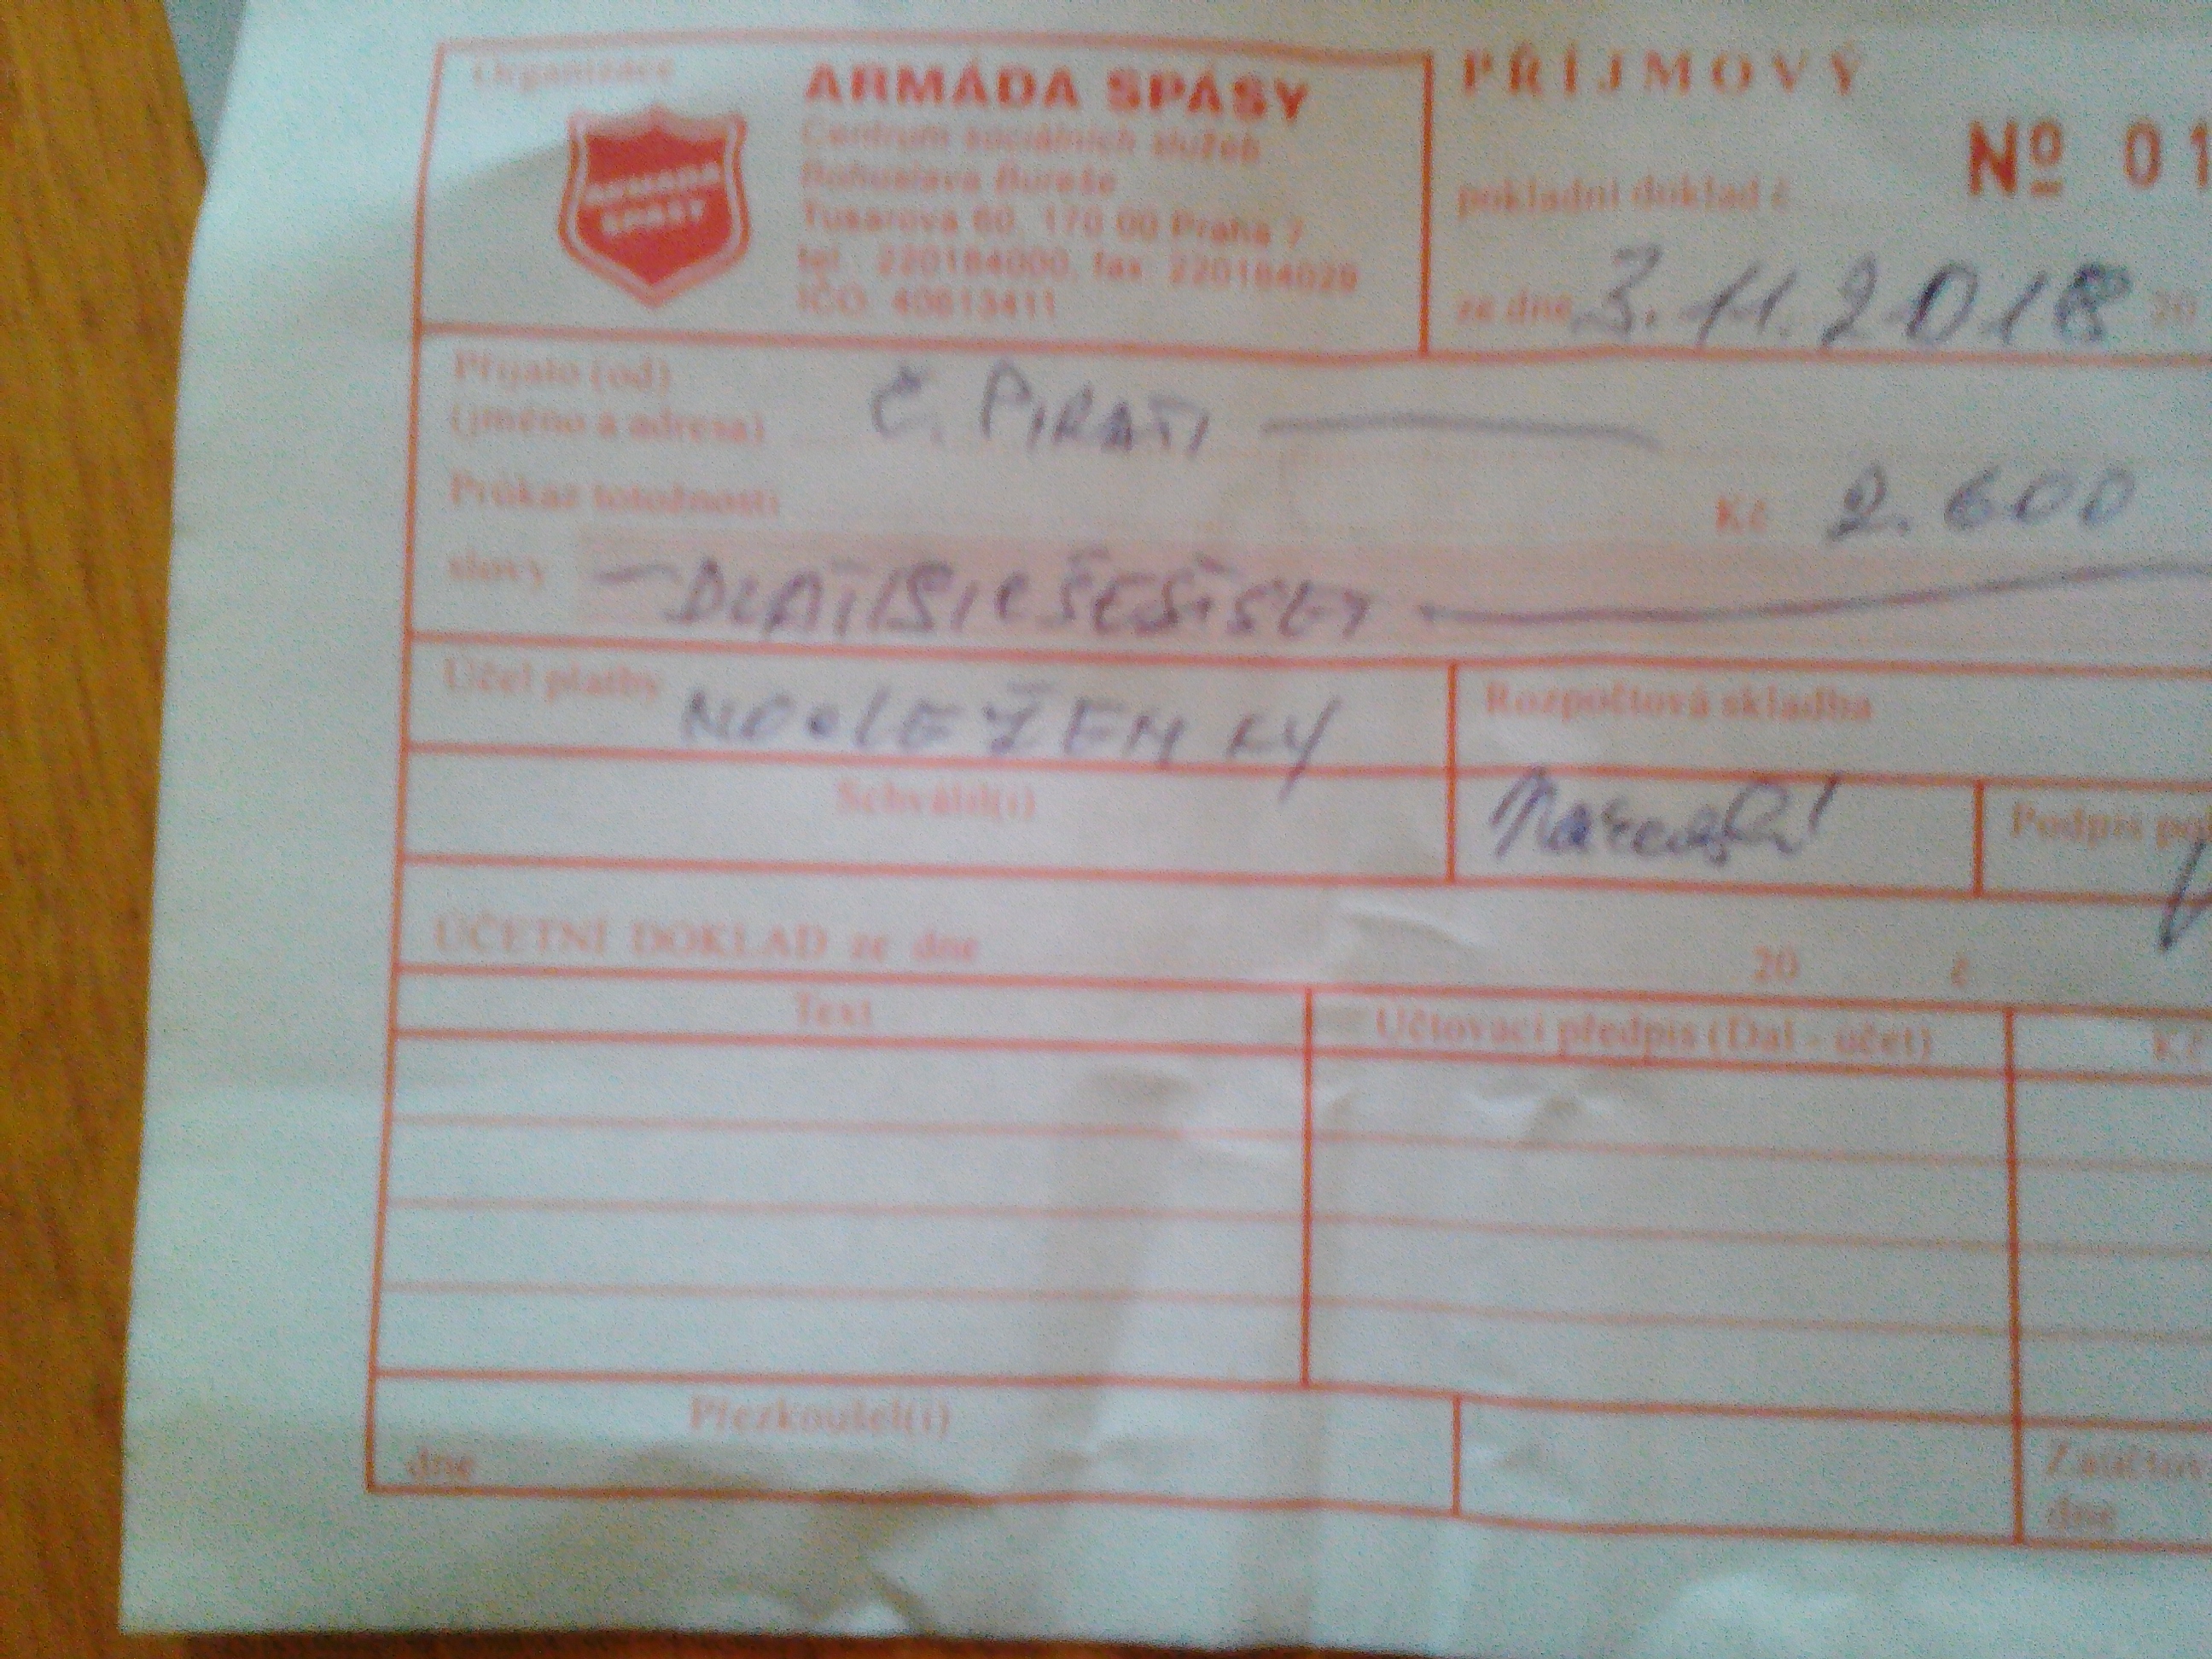 Organizace
ARMÁDA SPÁSY
Centrum sociálních služeb
Bohuslava Bureše
Tusarova 60, 170 00 Praha 7
tel.: 220184000, fax: 220184029
IČO: 40613411
ARMÁDA
SPÁSY
PŘÍJMOVÝ
Nº 01
pokladní doklad č
ze dne 3.11.2018 20
Přijato (od)
(jméno a adresa) Č. PIRÁTI
Průkaz totožnosti
Kč 2.600
slovy
Účel platby NOCLEŽENKY
Rozpočtová skladba
Schválil(i)
Podpis
ÚČETNÍ DOKLAD ze dne 20 č
Text
Účtovací předpis (Dal - účet)
Kč
Přezkoušel(i)
dne
Zaúčtov
dne